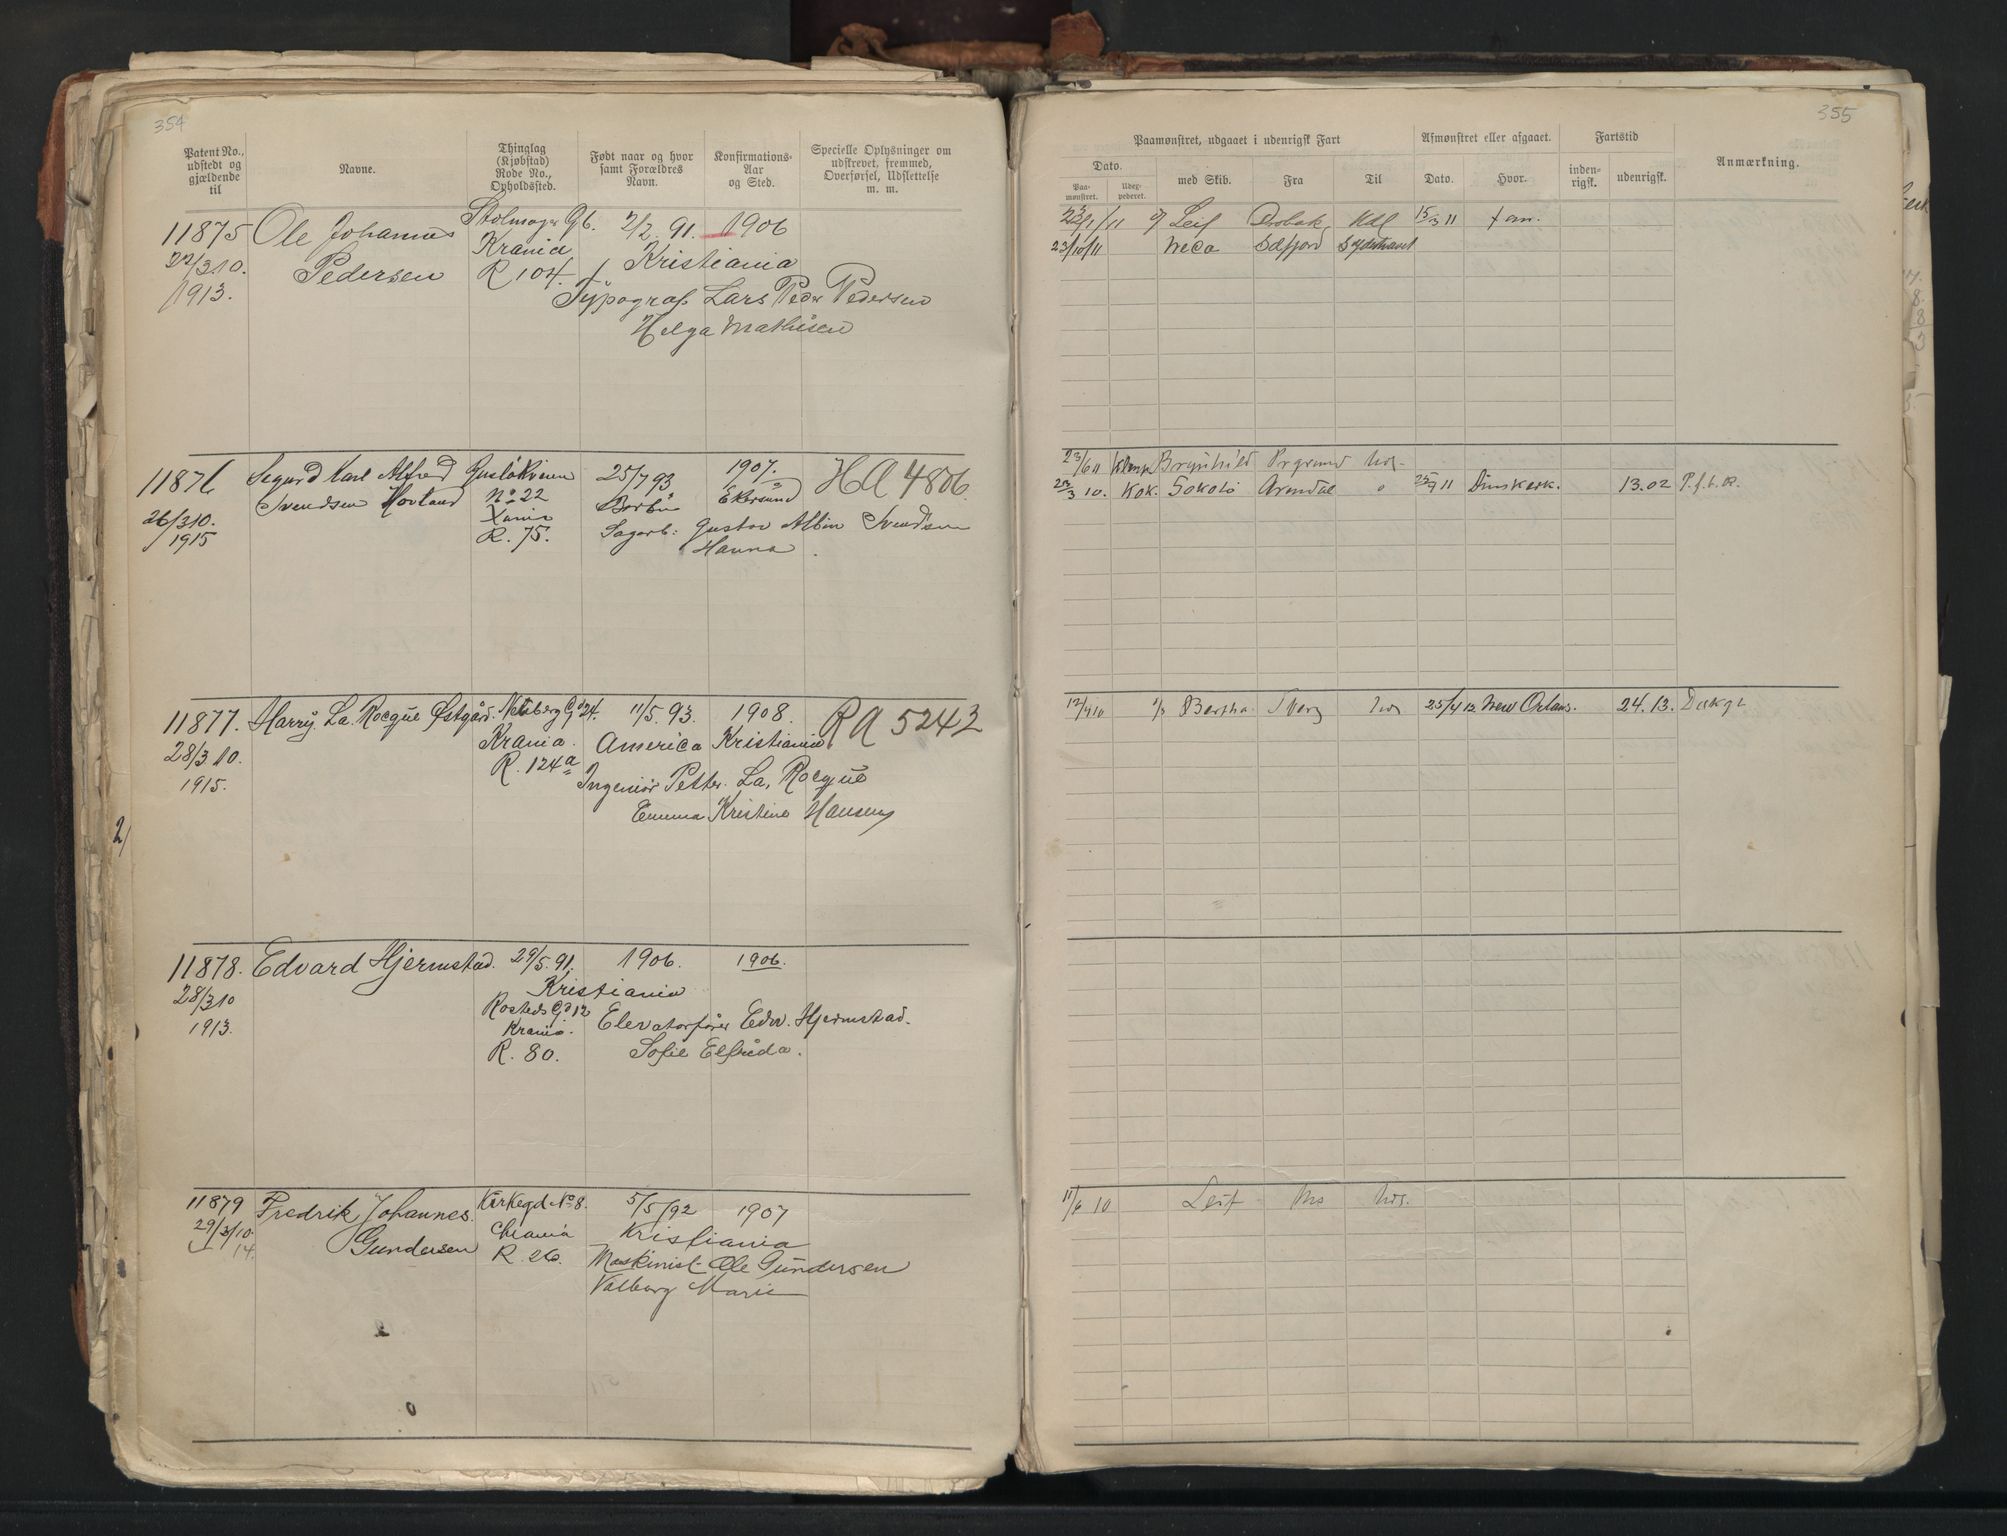 354
Patent No., udstedt og gjældende til
Navne.
Thinglag (Kjøbstad) Rode No., Opholdssted.
Født naar og hvor samt Forældres Navn.
Konfirmations-Aar og Sted.
Specielle Oplysninger om udskrevet, fremmed, Overførsel, Udslettelse m. m.
11875 Ole Johannes Gb. 2/2.91. 1906
3.10. Pedersen Krania Kristiania
1913. R 104. Typograf Lars Peder Pedersen
Helga Mathisen
11876 Sigurd Karl Alfred 25/7 93 1907. HA 4806
26/3 10. Svendsen Hovland No 22 Ekersund
1915 Xania Gustav Albin Svendsen
R. 75. Hanna
11877. Harry. La. Rocque Østgård. 24. 11/5.93. 1908. RA 5243
28/3 10. Krania. America Kristiania
1915. R. 124a Ingeniør Petter. La. Rocque
Emma Kristine Hansen
2/
11878. Edvard Hjermstad. 29/5.91. 1906. 1906.
28/3 10 Kristiania
1913. Rosteds Gd 12 Elevatorfører Edv. Hjermstad.
Krania.
R. 80. Sofie Elfrida.
11879 Fredrik Johannes Kirkegd No 8. 5/5/92 1907
29/3/10. Gundersen Chrania Kristiania
14. R. 26. Maskinist Ole Gundersen
Valborg Marie
355
Paamønstret, udgaaet i udenrigsk Fart
Afmønstret eller afgaaet.
Fartstid
Anmærkning.
Dato.
Paa-mønstret.
Udex-pederet.
med Skib.
Fra
Til
Dato.
Hvor.
inden-rigsk.
udenrigsk.
Leif Drøbak 15/3 11
23/10/11 Neca
23/6 11 Brynhild
10. Kok. Sokoto Arendal 11 13.02
12/4 10 Bertha 25/4 12 New Orleans. 24.13.
11/6 10 Leif Ms